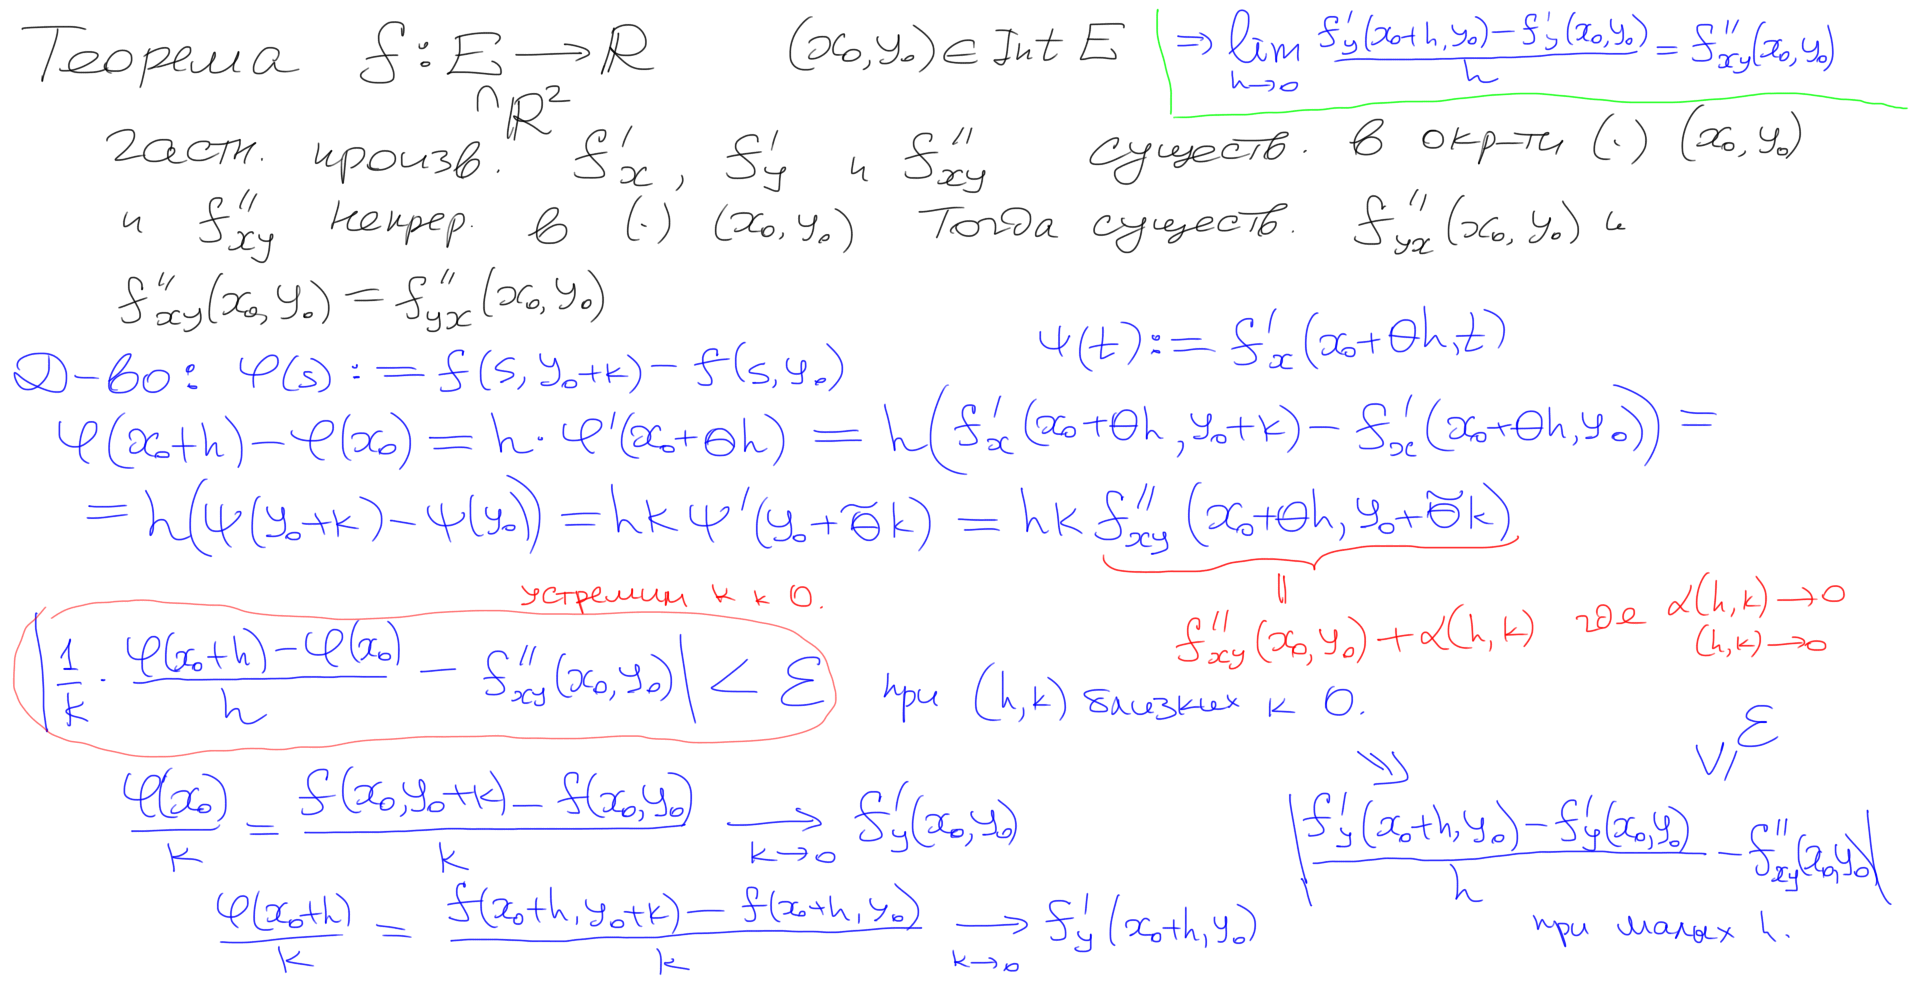 Теорема f: E → ℝ (x₀, y₀) ∈ Int E
∩ ℝ²
⇒ lim_{h→0} (f'_y(x₀+h, y₀) − f'_y(x₀, y₀)) / h = f''_{xy}(x₀, y₀)
частн. произв. f'_x, f'_y и f''_{xy} существ. в окр-ти (·) (x₀, y₀)
и f''_{xy} непрер. в (·) (x₀, y₀) Тогда существ. f''_{yx}(x₀, y₀) и
f''_{xy}(x₀, y₀) = f''_{yx}(x₀, y₀)
ψ(t) := f'_x(x₀+θh, t)
Д-во: φ(s) := f(s, y₀+k) − f(s, y₀)
φ(x₀+h) − φ(x₀) = h · φ'(x₀+θh) = h(f'_x(x₀+θh, y₀+k) − f'_x(x₀+θh, y₀)) =
= h(ψ(y₀+k) − ψ(y₀)) = hk ψ'(y₀+θ̃k) = hk f''_{xy}(x₀+θh, y₀+θ̃k)
устремим k к 0.
|| f''_{xy}(x₀, y₀) + α(h, k) где α(h, k) → 0
(h, k) → 0
| 1/k · (φ(x₀+h) − φ(x₀)) / h − f''_{xy}(x₀, y₀) | < ε при (h, k) близких к 0.
φ(x₀)/k = (f(x₀, y₀+k) − f(x₀, y₀)) / k →_{k→0} f'_y(x₀, y₀)
φ(x₀+h)/k = (f(x₀+h, y₀+k) − f(x₀+h, y₀)) / k →_{k→0} f'_y(x₀+h, y₀)
⇓ | (f'_y(x₀+h, y₀) − f'_y(x₀, y₀)) / h − f''_{xy}(x₀, y₀) | ≤ ε
при малых h.